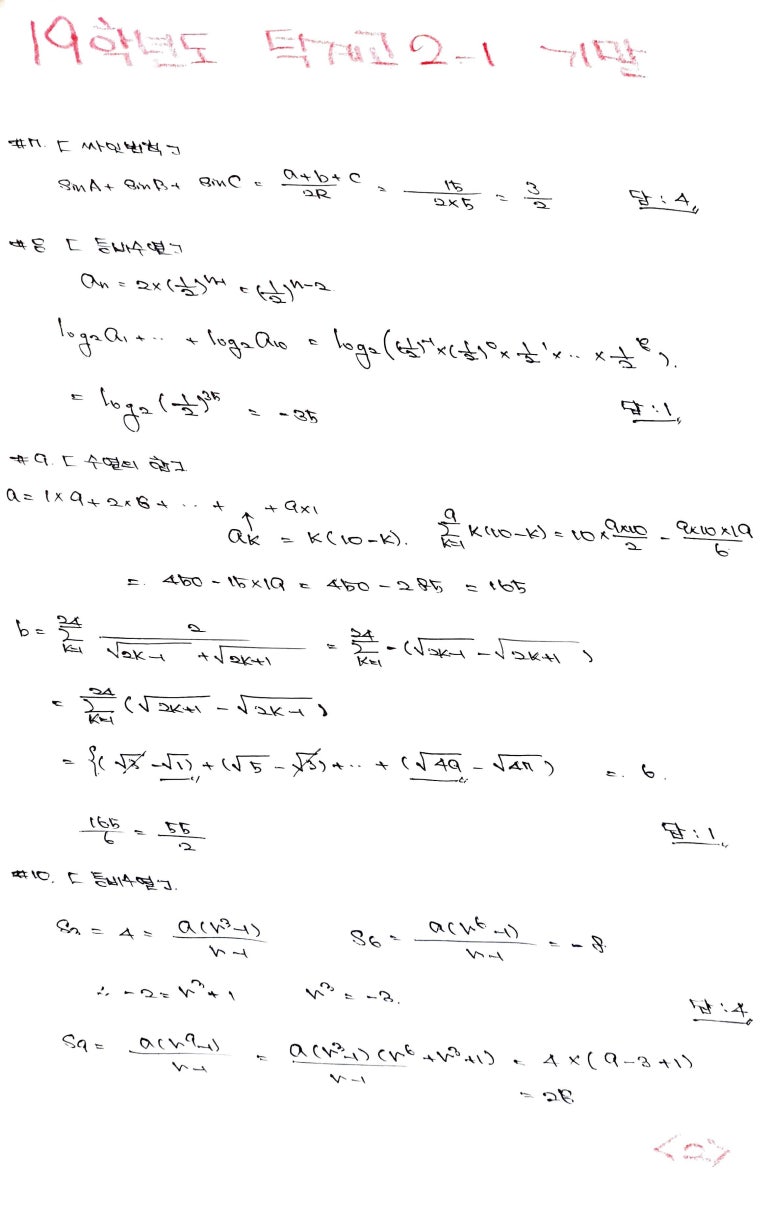 19학년도 덕계고 2-1 기말
#7. [ 싸인법칙 ]
sinA + sinB + sinC = (a+b+c)/2R = 15/(2×5) = 3/2 답 : 4
#8 [ 등비수열 ]
an = 2×(1/2)^(n-1) = (1/2)^(n-2)
log₂a₁ + ‥ + log₂a₁₀ = log₂((1/2)^-1×(1/2)^0×1/2^1×‥×1/2^8).
= log₂(1/2)^35 = -35 답 : 1
#9. [ 수열의 합 ]
a = 1×9+2×8+ ‥ + + 9×1
↑
ak = k(10-k). 9∑k=1 k(10-k) = 10×(9×10)/2 - (9×10×19)/6
= 450-15×19 = 450-285 = 165
b = 24∑k=1 2/(√2k-1 + √2k+1) = 24∑k=1 -(√2k-1 - √2k+1)
= 24∑k=1 (√2k+1 - √2k-1)
= {(√3 - √1) + (√5 - √3) + ‥ + (√49 - √47) = 6.
165/6 = 55/2 답 : 1
#10. [ 등비수열 ].
S₃ = 4 = a(r³-1)/(r-1) S6 = a(r⁶-1)/(r-1) = -8
∴ -2 = r³+1 r³ = -3. 답 : 4
S9 = a(r⁹-1)/(r-1) = a(r³-1)(r⁶+r³+1)/(r-1) = 4×(9-3+1)
= 28.
<2>